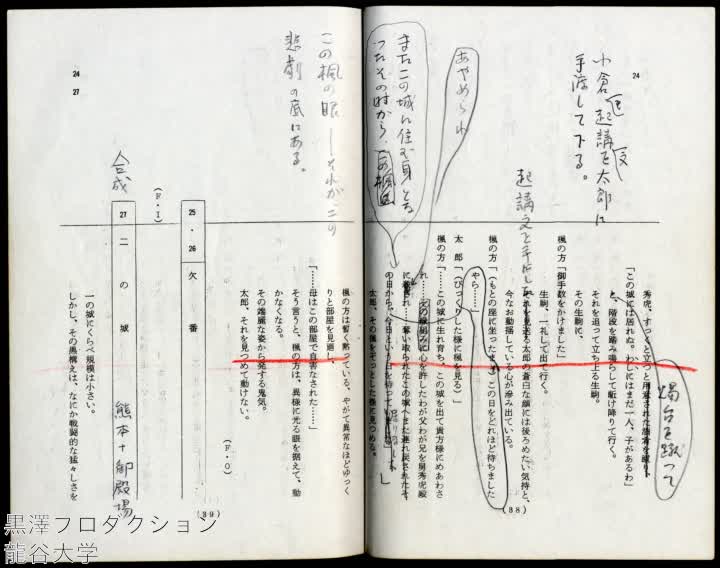 24
小倉、起請を太郎に
手渡して下る。
起請文を手にした
燭台を蹴って
あやめられ
またこの城に住む身となつ
たその時から
秀虎、すつくと立つと用意された膳部を蹴り
「この城には居れぬ。わしにはまだ一人、子があるわ」
と、階段を踏み鳴らして駆け降りて行く。
それを追って立ち上る生駒。
その生駒に、
楓の方「御手数をかけました」
生駒、一礼して出て行く。
それを見送る太郎の蒼白な顔には後ろめたい気持と、
今なお動揺している心が滲み出ている。
楓の方「(もとの座に坐った) この日をどれほど待ちました
やら……」
太郎「(びっくりした様に楓を見る)」
楓の方「……この城に生れ育ち、この城を出て貴方様にめあわさ
れ……その縁組みに心を許したわが父わが兄を舅秀虎殿
に奪い取られたこの城へまた連れ戻されたそ
の日から、今日という日を待っていました」
太郎、その楓をぞっとした様に見つめる。
(38)
24
27
この楓の眼――それがこの
悲劇の底にある。
楓の方は暫く黙っている、やがて異常なほどゆっく
りと部屋を見廻し、
「……母はこの部屋で自害なされた……」
そう言うと、楓の方は、異様に光る眼を据えて、動
かなくなる。
その端麗な姿から発する鬼気。
太郎、それを見つめて動けない。
(F・O)
25・26 欠番
(F・I)
合成
27 二の城
熊本+御殿場
一の城にくらべ規模は小さい。
しかし、その黒構えは、なにか戦闘的な猛々しさを
(39)
黒澤プロダクション
龍谷大学